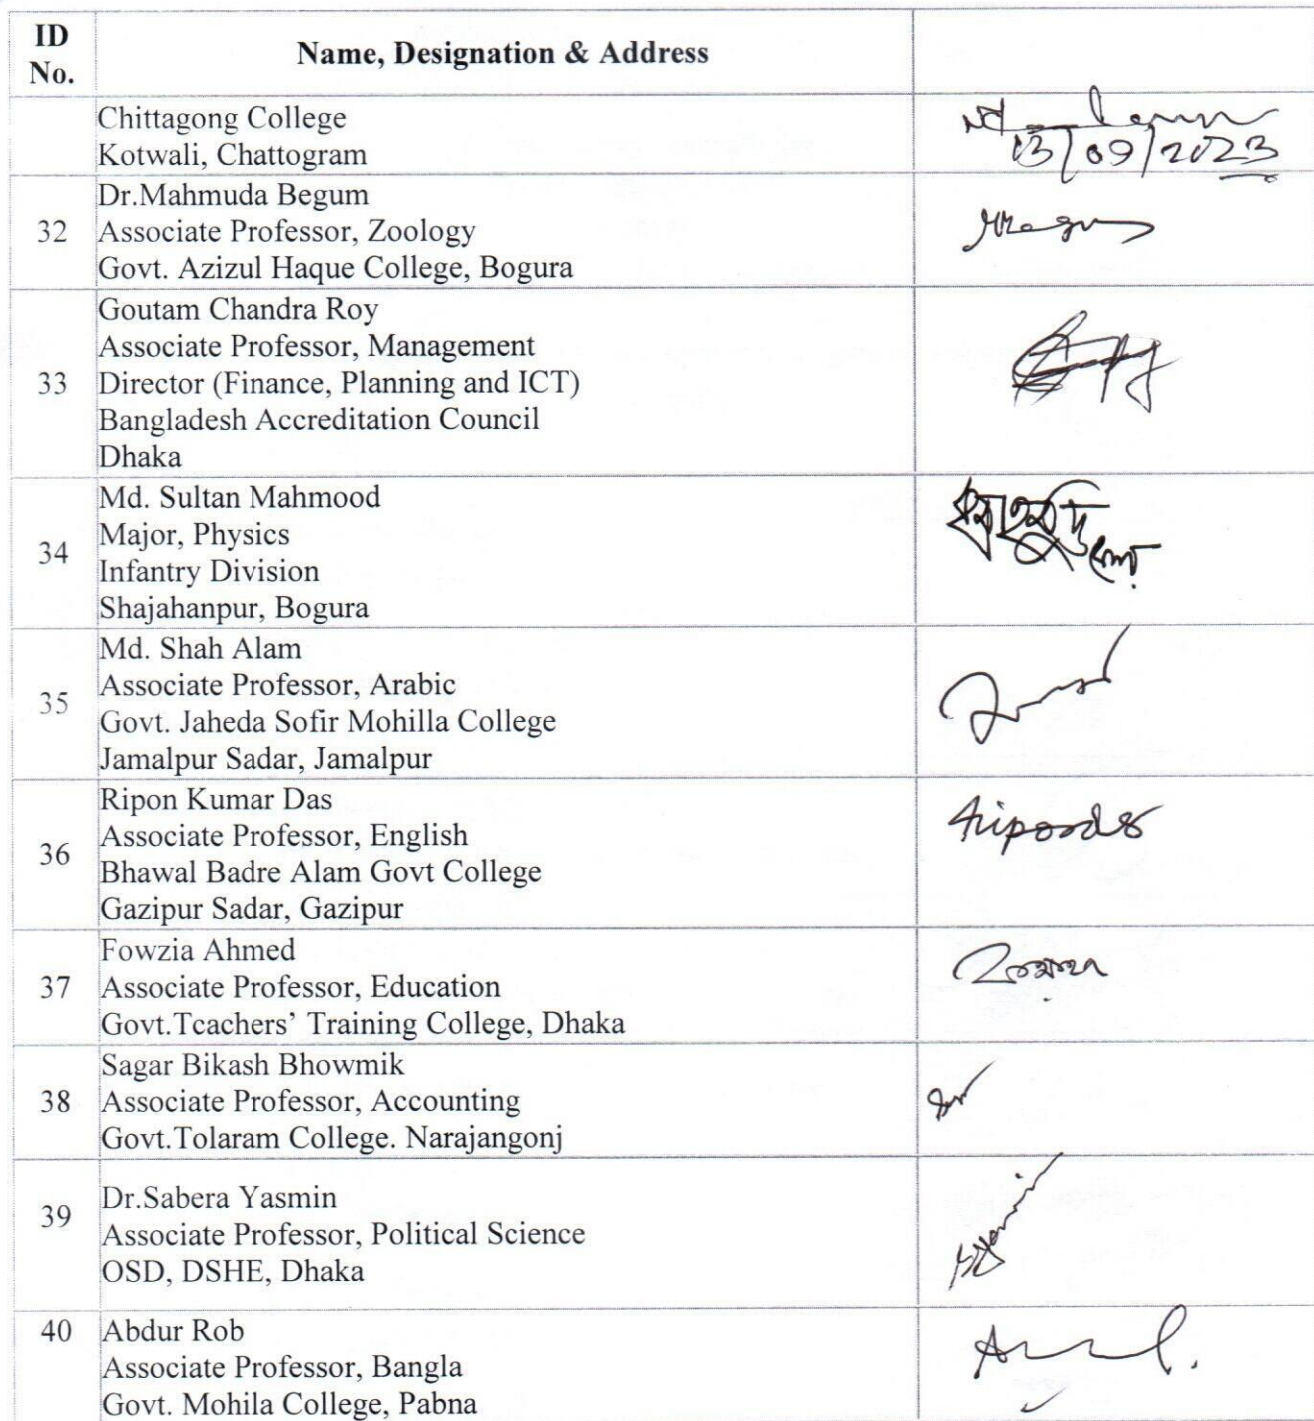 ID
No.
Name, Designation & Address
Chittagong College
Kotwali, Chattogram
13/09/2023
32
Dr.Mahmuda Begum
Associate Professor, Zoology
Govt. Azizul Haque College, Bogura
33
Goutam Chandra Roy
Associate Professor, Management
Director (Finance, Planning and ICT)
Bangladesh Accreditation Council
Dhaka
34
Md. Sultan Mahmood
Major, Physics
Infantry Division
Shajahanpur, Bogura
35
Md. Shah Alam
Associate Professor, Arabic
Govt. Jaheda Sofir Mohilla College
Jamalpur Sadar, Jamalpur
36
Ripon Kumar Das
Associate Professor, English
Bhawal Badre Alam Govt College
Gazipur Sadar, Gazipur
37
Fowzia Ahmed
Associate Professor, Education
Govt.Teachers’ Training College, Dhaka
38
Sagar Bikash Bhowmik
Associate Professor, Accounting
Govt.Tolaram College. Narajangonj
39
Dr.Sabera Yasmin
Associate Professor, Political Science
OSD, DSHE, Dhaka
40
Abdur Rob
Associate Professor, Bangla
Govt. Mohila College, Pabna